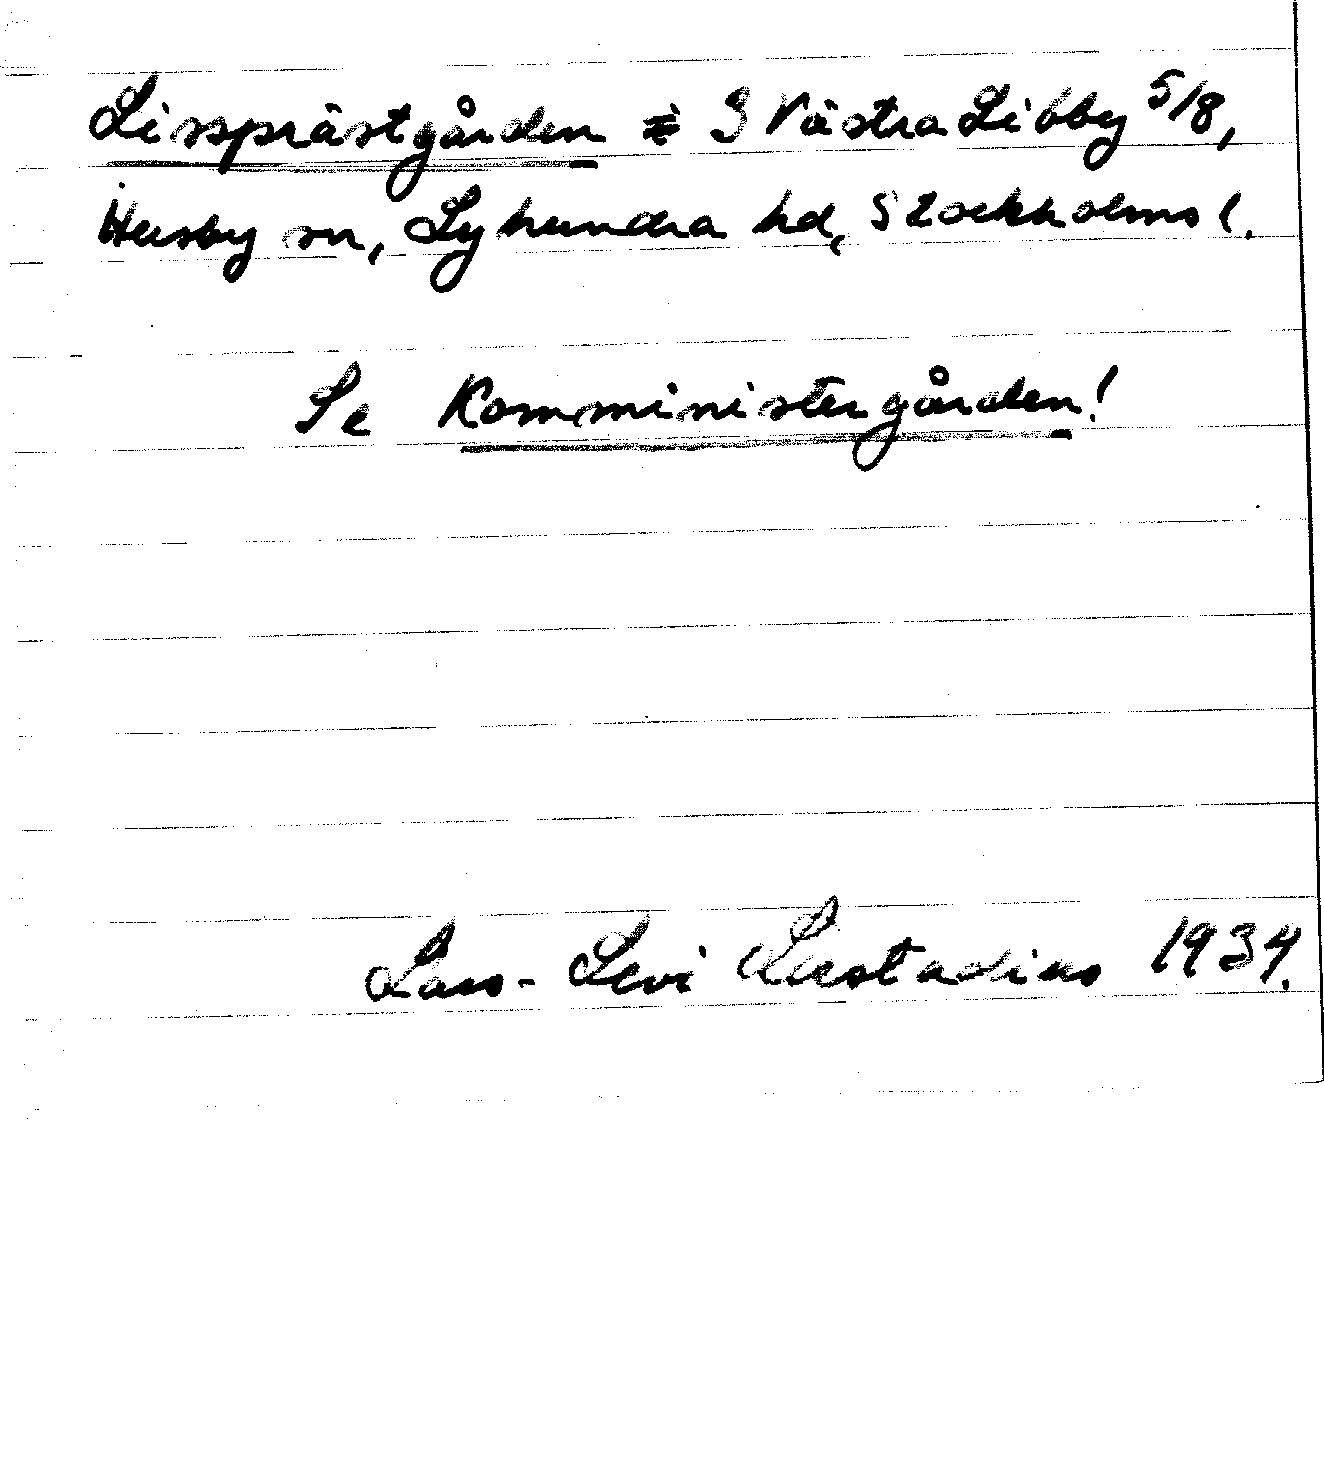 Lissprästgården = 3 Västra Libby 5/8,
Husby sn, Lyhundra hd, Stockholms l.
Se Komministergården!
Lars-Levi Læstadius 1934.